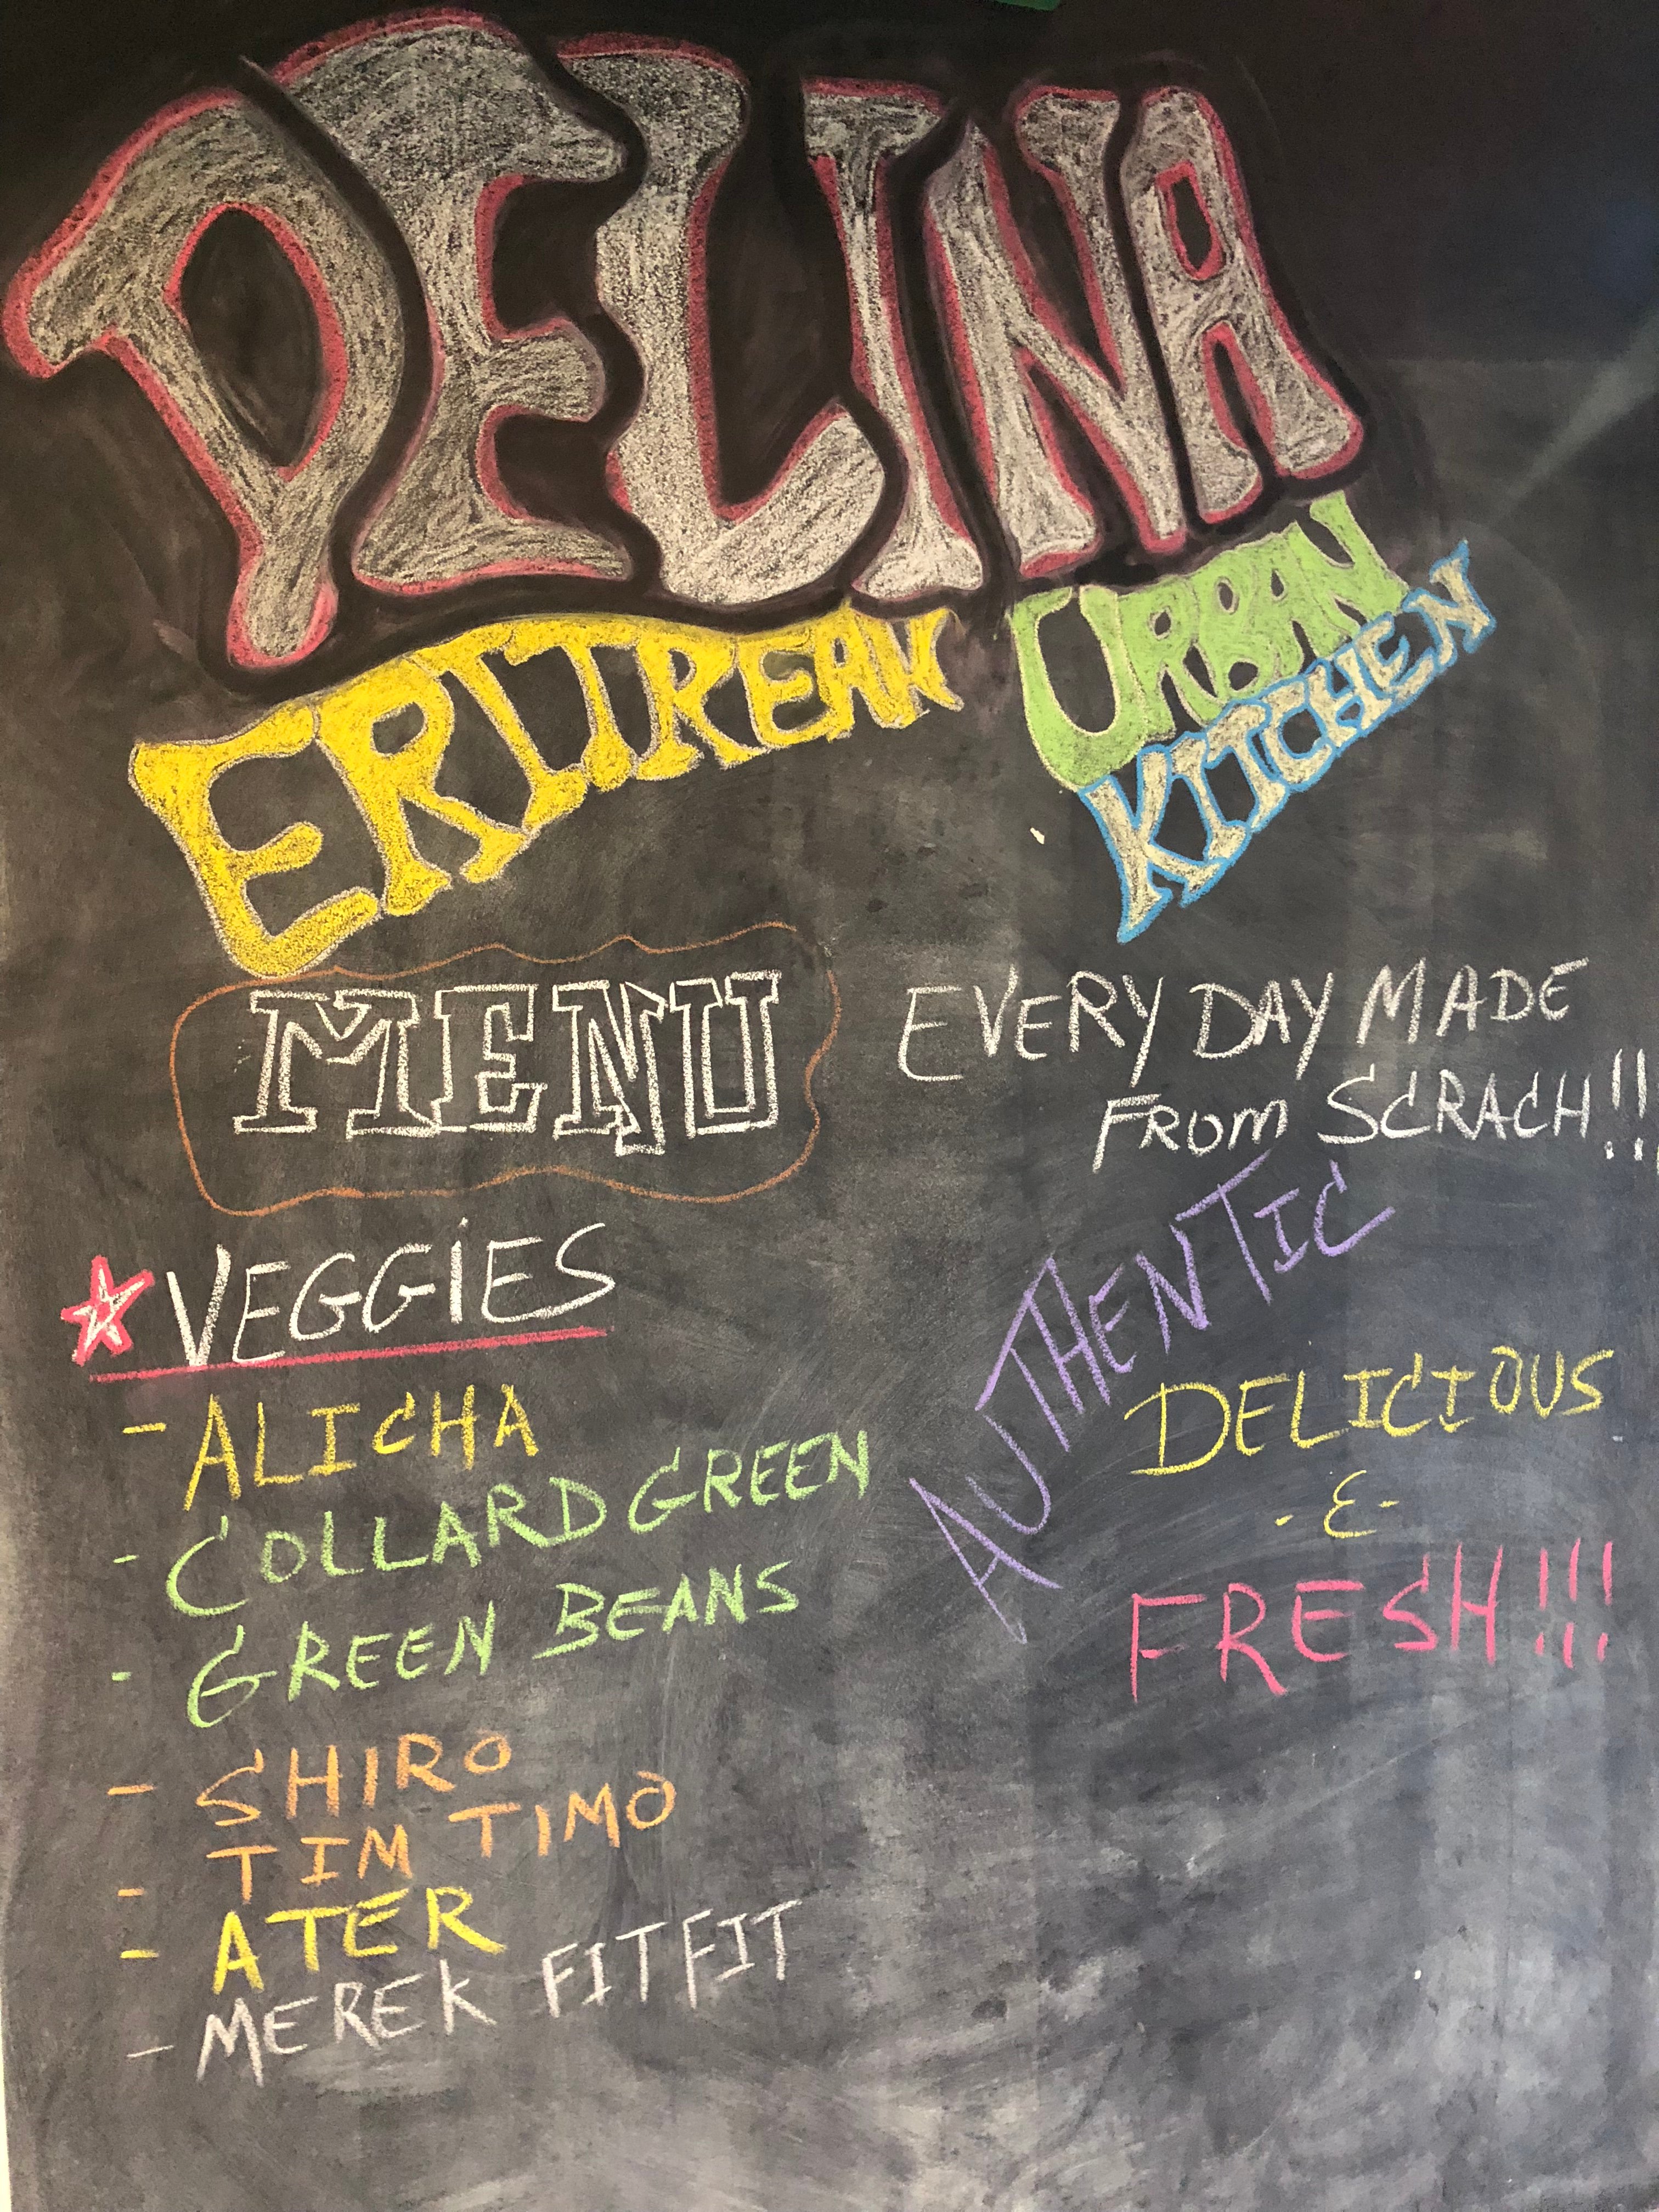 DELINA
ERITREAN
URBAN
KITCHEN
MENU
EVERY DAY MADE
FROM SCRACH!!!
VEGGIES
- ALICHA
- COLLARD GREEN
- GREEN BEANS
- SHIRO
- TIM TIMO
- ATER
- MEREK FITFIT
AUTHENTIC
DELICIOUS
- & -
FRESH!!!